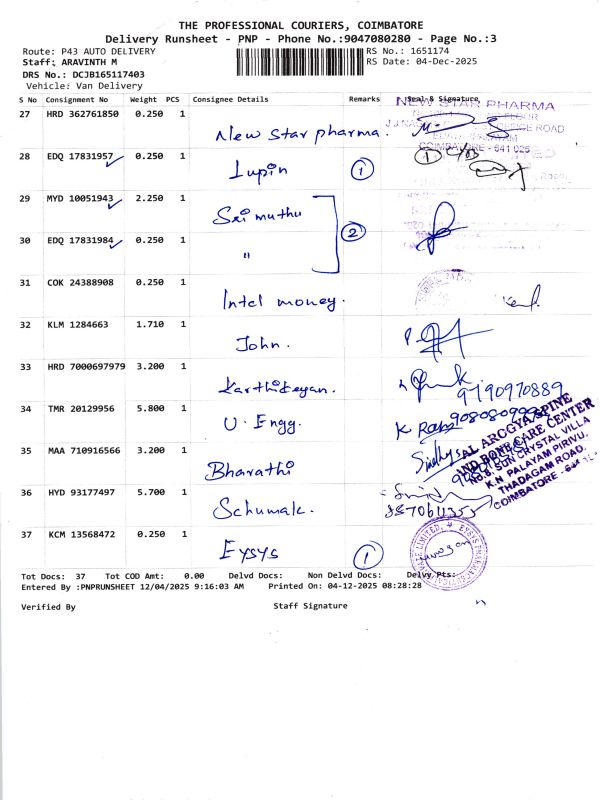 THE PROFESSIONAL COURIERS, COIMBATORE
Delivery Runsheet - PNP - Phone No.:9047080280 - Page No.:3
Route: P43 AUTO DELIVERY RS No.: 1651174
Staff: ARAVINTH M RS Date: 04-Dec-2025
DRS No.: DCJB165117403
Vehicle: Van Delivery
S No Consignment No Weight PCS Consignee Details Remarks Seal & Signature
27 HRD 362761850 0.250 1 New star pharma.
NEW STAR PHARMA
COIMBATORE - 641 025
28 EDQ 17831957 0.250 1 Lupin 1
29 MYD 10051943 2.250 1 Sri muthu 2
30 EDQ 17831984 0.250 1 "
31 COK 24388908 0.250 1 Intel money.
32 KLM 1284663 1.710 1 John.
33 HRD 7000697979 3.200 1 Karthikeyan. 9790970889
34 TMR 20129956 5.800 1 U. Engg. K Ram
35 MAA 710916566 3.200 1 Bharathi
AROGYA SPINE
AND BONE CARE CENTER
NO.8, SUN CRYSTAL VILLA
K.N. PALAYAM PIRIVU,
THADAGAM ROAD,
COIMBATORE - 641
36 HYD 93177497 5.700 1 Schumak.
37 KCM 13568472 0.250 1 Eysys 1
Tot Docs: 37 Tot COD Amt: 0.00 Delvd Docs: Non Delvd Docs: Delvy Pts:
Entered By :PNPRUNSHEET 12/04/2025 9:16:03 AM Printed On: 04-12-2025 08:28:28
Verified By Staff Signature